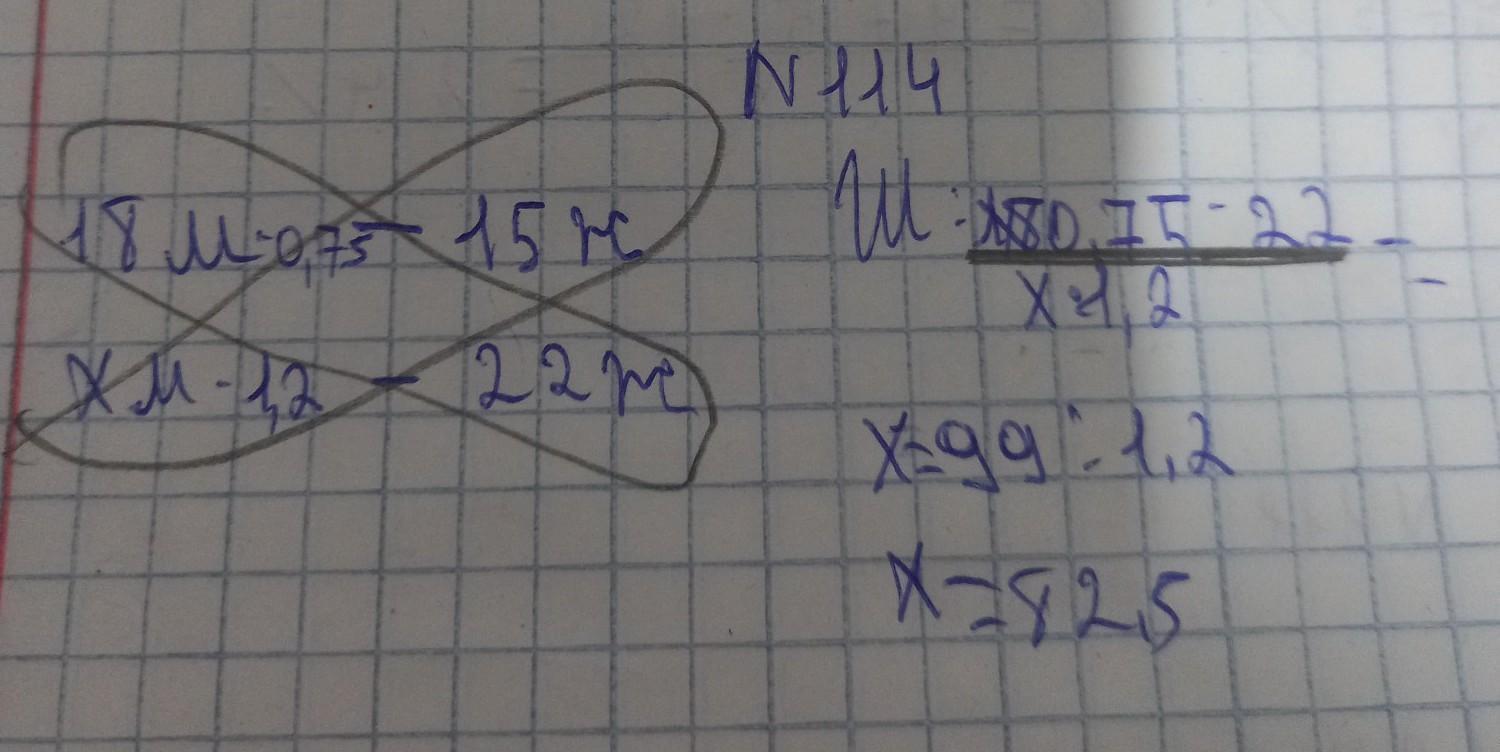 N 114
18 м - 0,75 — 15 ж
x м - 1,2 — 22 ж
Ш: 0,75 - 22 =
x 1,2
x = 99 : 1,2
x = 82,5